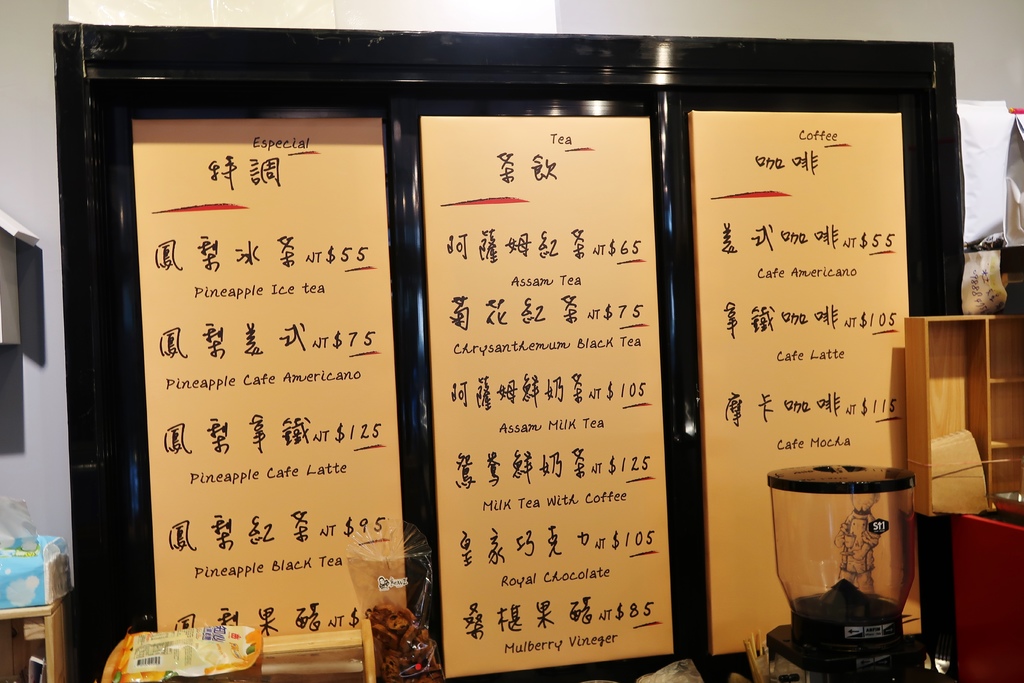 Especial
特調
鳳梨冰茶 NT$55
Pineapple Ice tea
鳳梨美式 NT$75
Pineapple Cafe Americano
鳳梨拿鐵 NT$125
Pineapple Cafe Latte
鳳梨紅茶 NT$95
Pineapple Black Tea
鳳梨果醋 NT$
Tea
茶飲
阿薩姆紅茶 NT$65
Assam Tea
菊花紅茶 NT$75
Chrysanthemum Black Tea
阿薩姆鮮奶茶 NT$105
Assam Milk Tea
鴛鴦鮮奶茶 NT$125
Milk Tea With Coffee
皇家巧克力 NT$105
Royal Chocolate
桑椹果醋 NT$85
Mulberry Vineger
Coffee
咖啡
美式咖啡 NT$55
Cafe Americano
拿鐵咖啡 NT$105
Cafe Latte
摩卡咖啡 NT$115
Cafe Mocha